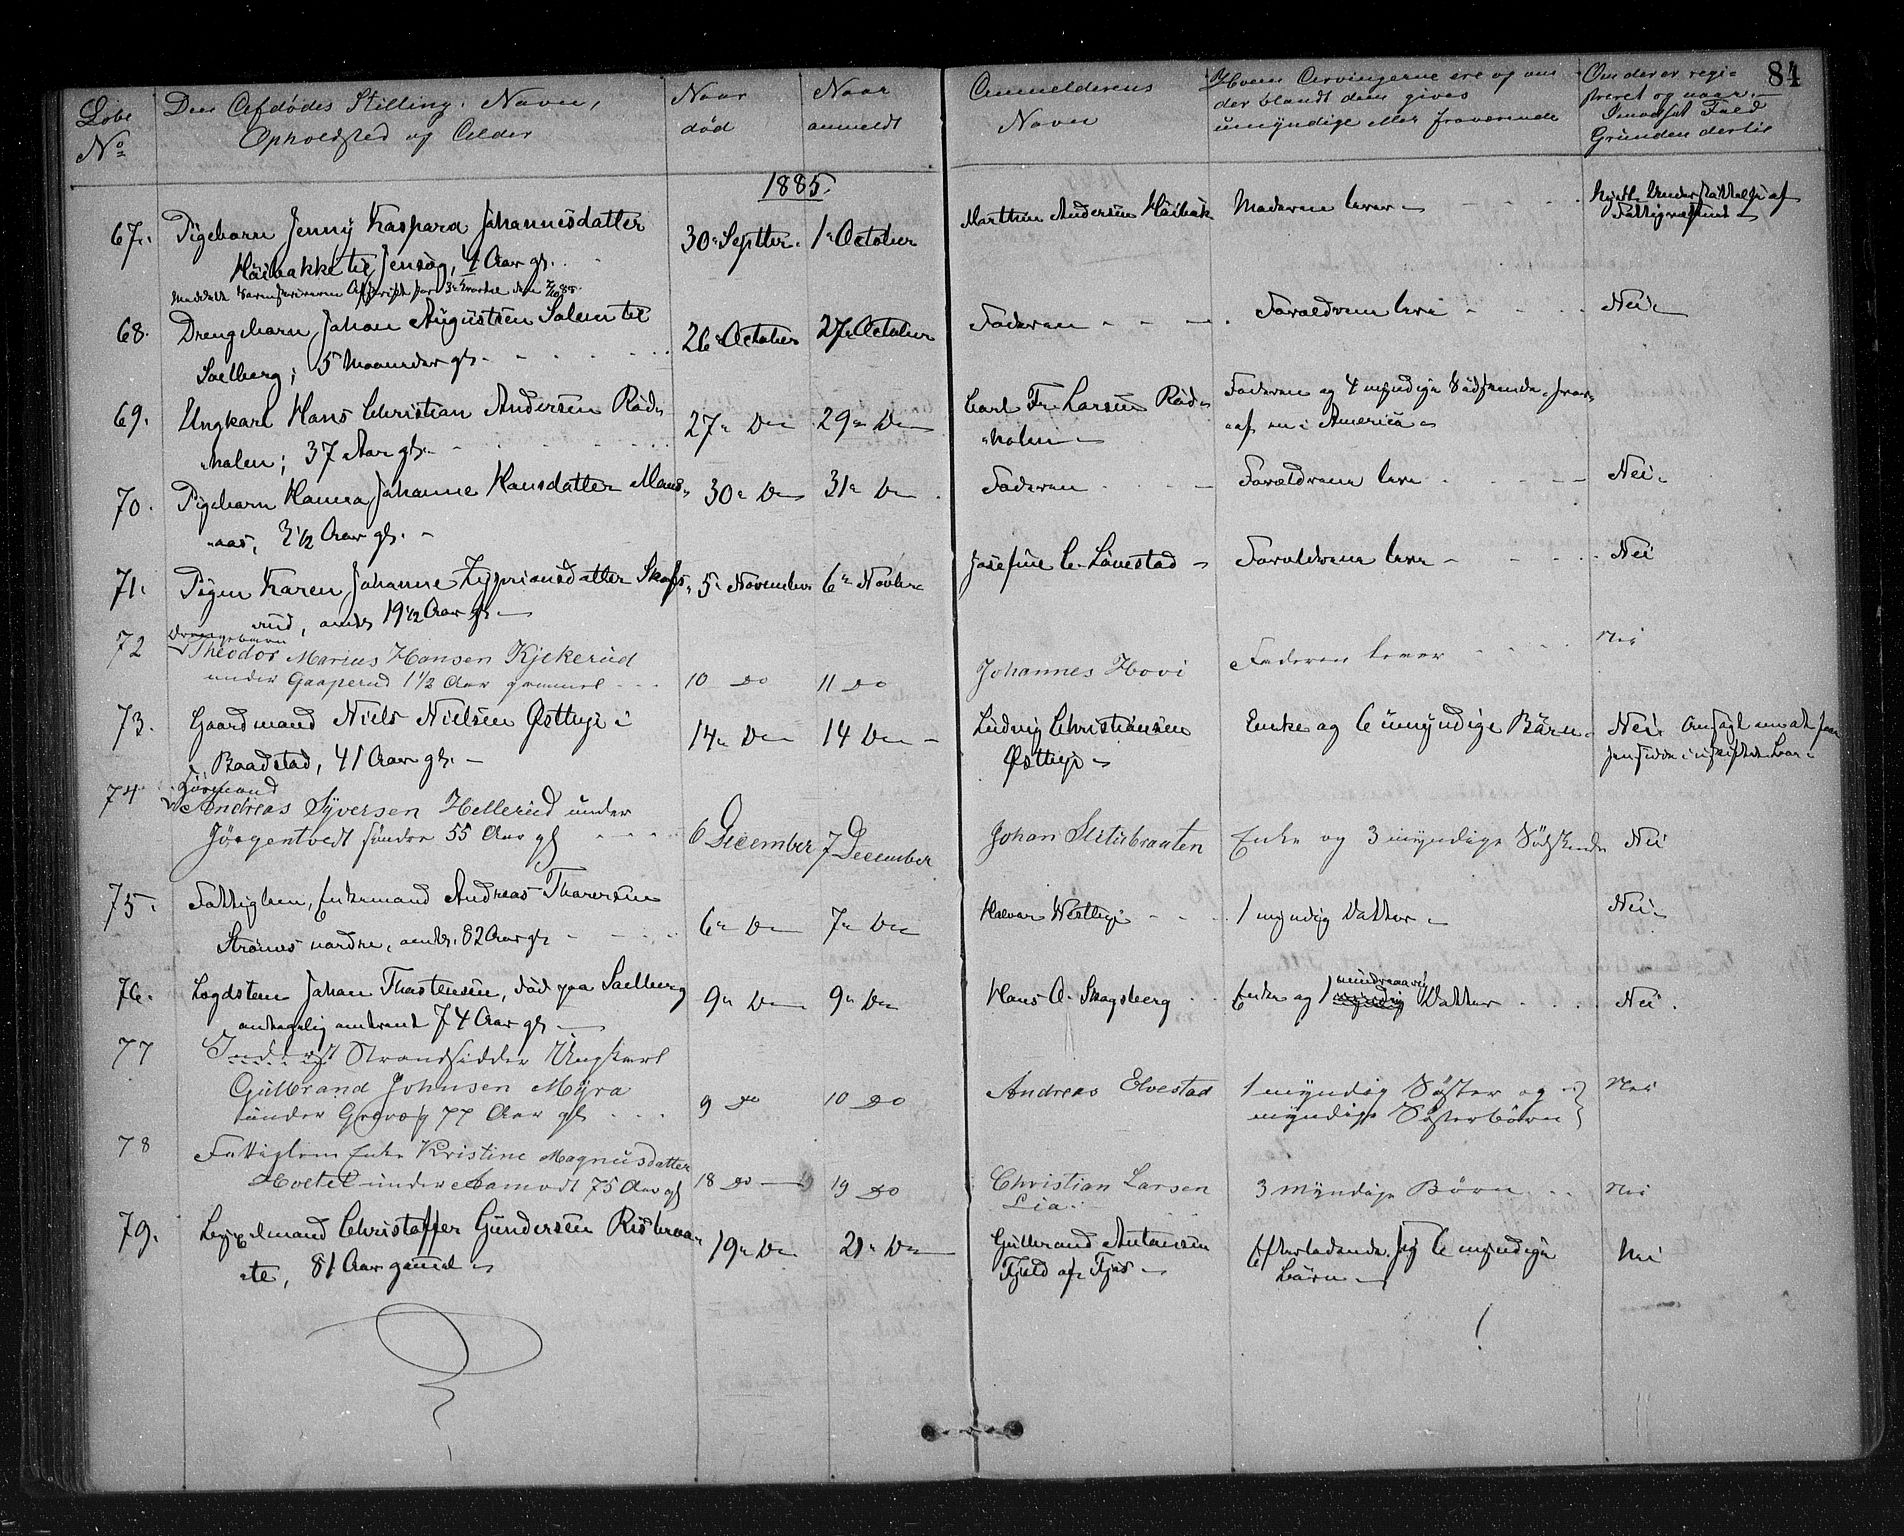 84
Løbe
No
Den Afdødes Stilling, Navn,
Opholdsted og Alder
Naar
død
Naar
anmeldt
Anmelderens
Navn
Hvem Arvingerne ere og om
der blandt dem gives
umyndige eller fraværende
Om der er regi-
streret og naar.
I modsat Fald
Grunden dertil
1885.
67. Pigebarn Jenny Kaspara Johannesdatter 30 Septber. 1 October Marthin Andersen Høibak Moderen lever Nydt Understøttelse af
Høibakke til Jensøg, 1 Aar gl. Fattigvæsenet
68. Drengebarn Johan Augustsen Solem til 26 October 27 October Faderen Forældrene leve Nei
Saelberg; 5 Maaneder gl.
69. Ungkarl Hans Christian Andersen Rød- 27 Do 29 Do Carl Fr. Larsen Rød- Faderen og 4 myndige Sødskende, hvor-
holen; 37 Aar gl. holen af en i America
70. Pigebarn Hanna Johanne Hansdatter Mans- 30 Do 31 Do Faderen Forældrene leve Nei
aas, 3 1/2 Aar gl.
71. Pigen Karen Johanne Zyprionsdatter Skofs- 5 November 6 Novbr Josefine C. Lønestad Forældrene leve Nei
rud, omtr 19 1/2 Aar gl
72 Drengebarn
Theodor Marius Hansen Kjekerud
under Gaaperud 1 1/2 Aar gammel 10 Do 11 Do Johannes Hovi Faderen lever Nei
73. Gaardmand Niels Nielsen Østbye i 14 Do 14 Do Ludvig Christiansen Enke og 6 umyndige Børn Nei.
Baadstad, 41 Aar gl. Østbye
74 Gaardmand
Andreas Syversen Hellerud under
Jørgentvedt søndre 55 Aar gl 6 December 7 December Johan Slitubraaten Enke og 3 myndige Sødskende Nei
75. Fattiglem, Enkemand Andreas Thoresen 6 Do 7 Do Halvor Westbye 1 myndig Datter Nei
Strønes nordre, omtr. 82 Aar gl
76. Logdslem Johan Thorstensen, død paa Saelberg 9 Do 9 Do Hans A. Skogsberg Enke og 1 mindreaarig myndig Datter Nei.
antagelig omtrent 74 Aar gl
77 Inderst Strandsidder Ungkarl
Gulbrand Johnsen Myra
under Grevsg 77 Aar gl 9 Do 10 Do Andreas Elvestad 1 myndig Søster og Nei
myndige Søsterbørn
78 Fattiglem Enke Kristine Magnusdatter
Hvetel under Aamodt 75 Aar gl 18 Do 19 Do Christian Larsen 3 myndige Børn Nei
Lia
79. Christoffer Gundersen Risbraa- 19 Do 21 Do Gulbrand Antonsen Efterladende sig 6 myndige Nei
te, 81 Aar gamel Fjeld af Fjøs Børn